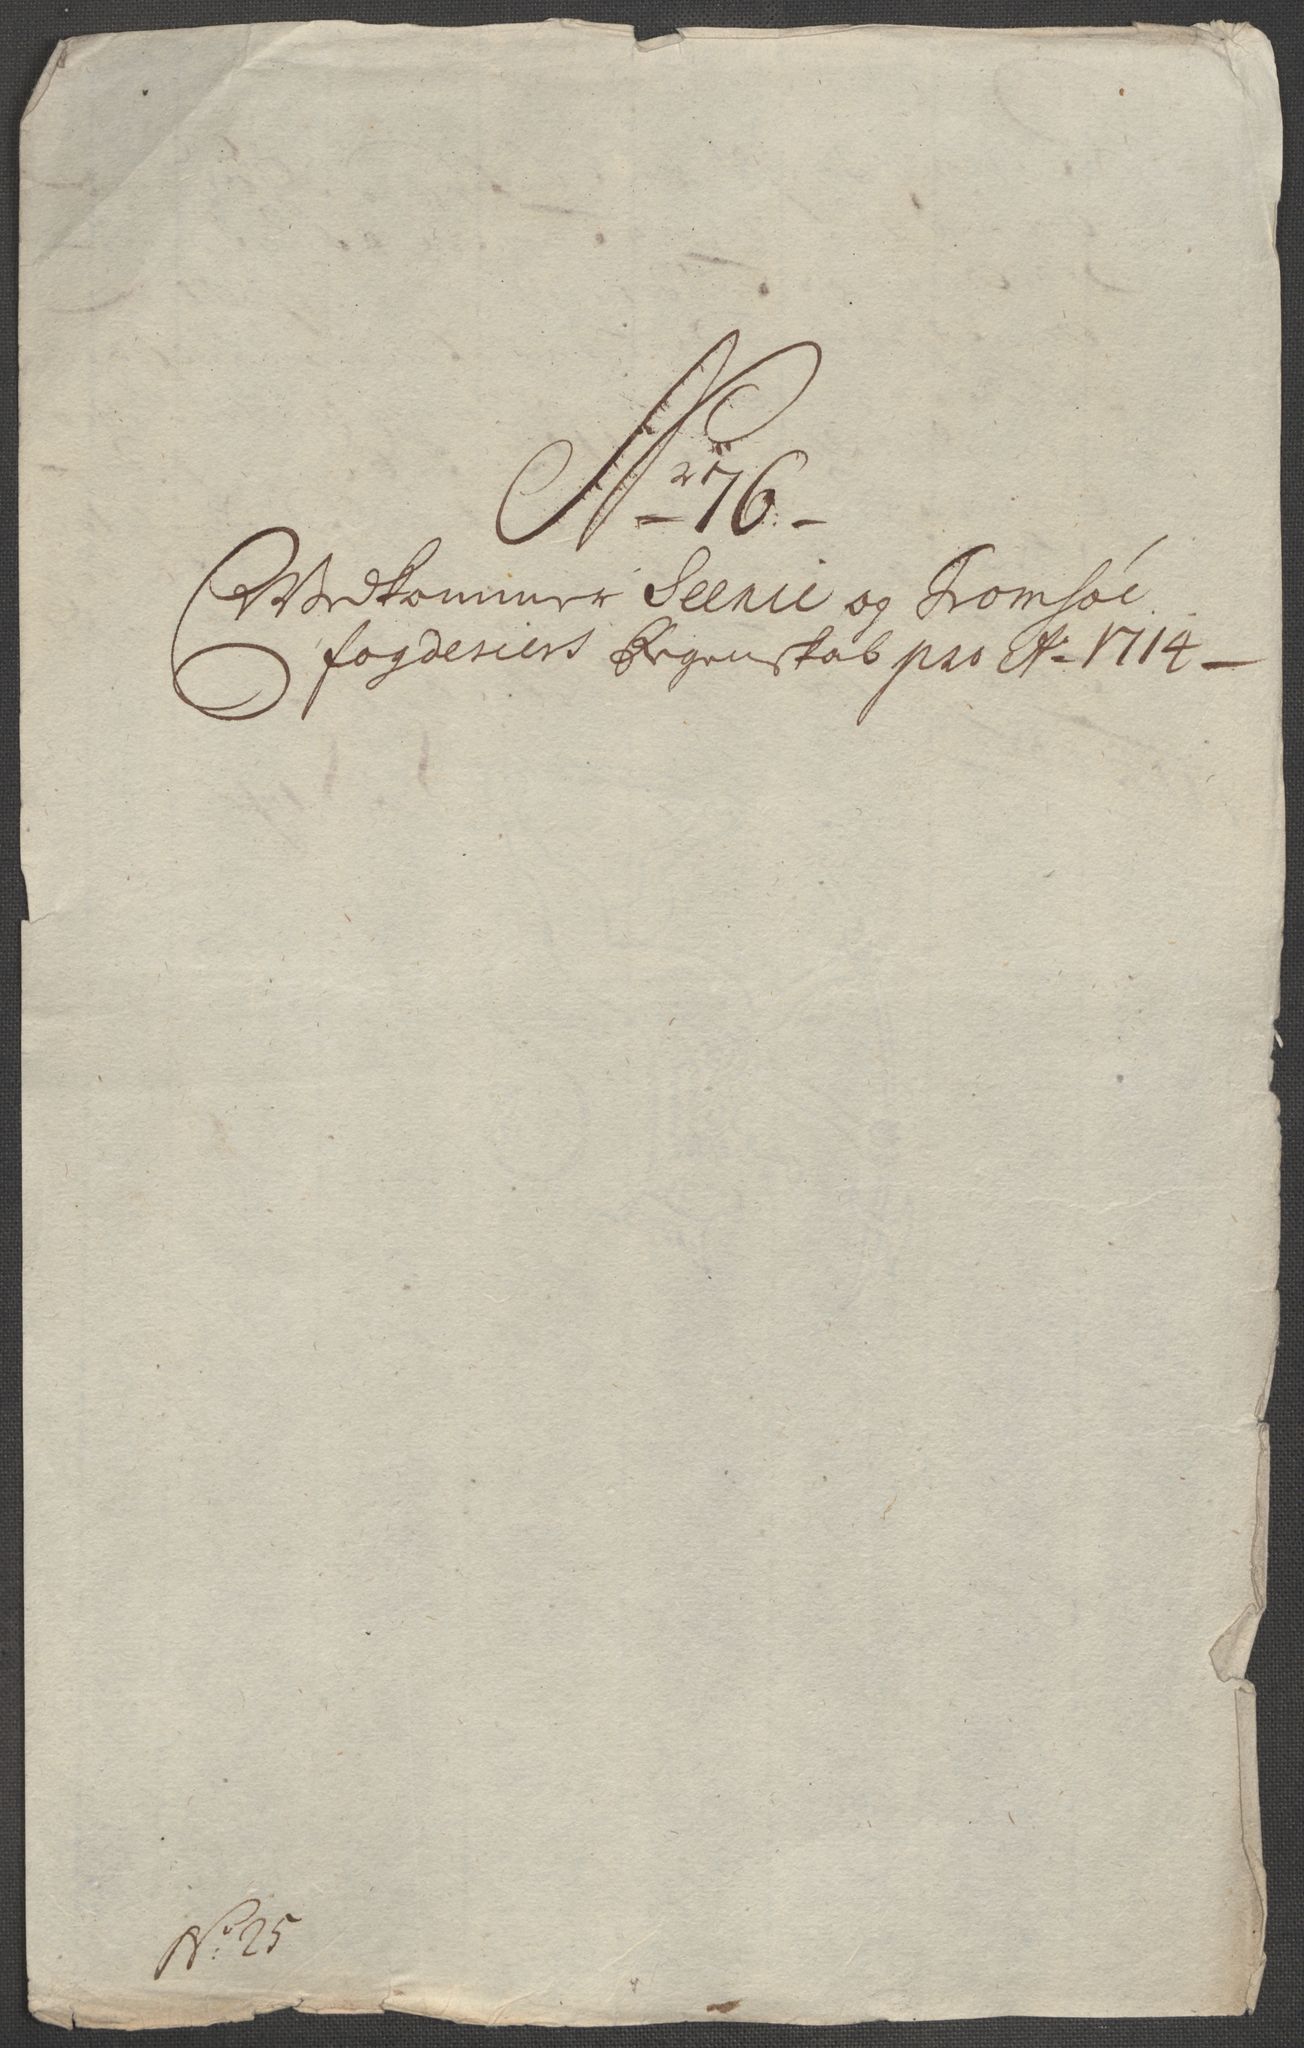 No 76.
Vedkommer Seenie og Tromsøe
fogderiers Regenskab pro Ao 1714
No 25